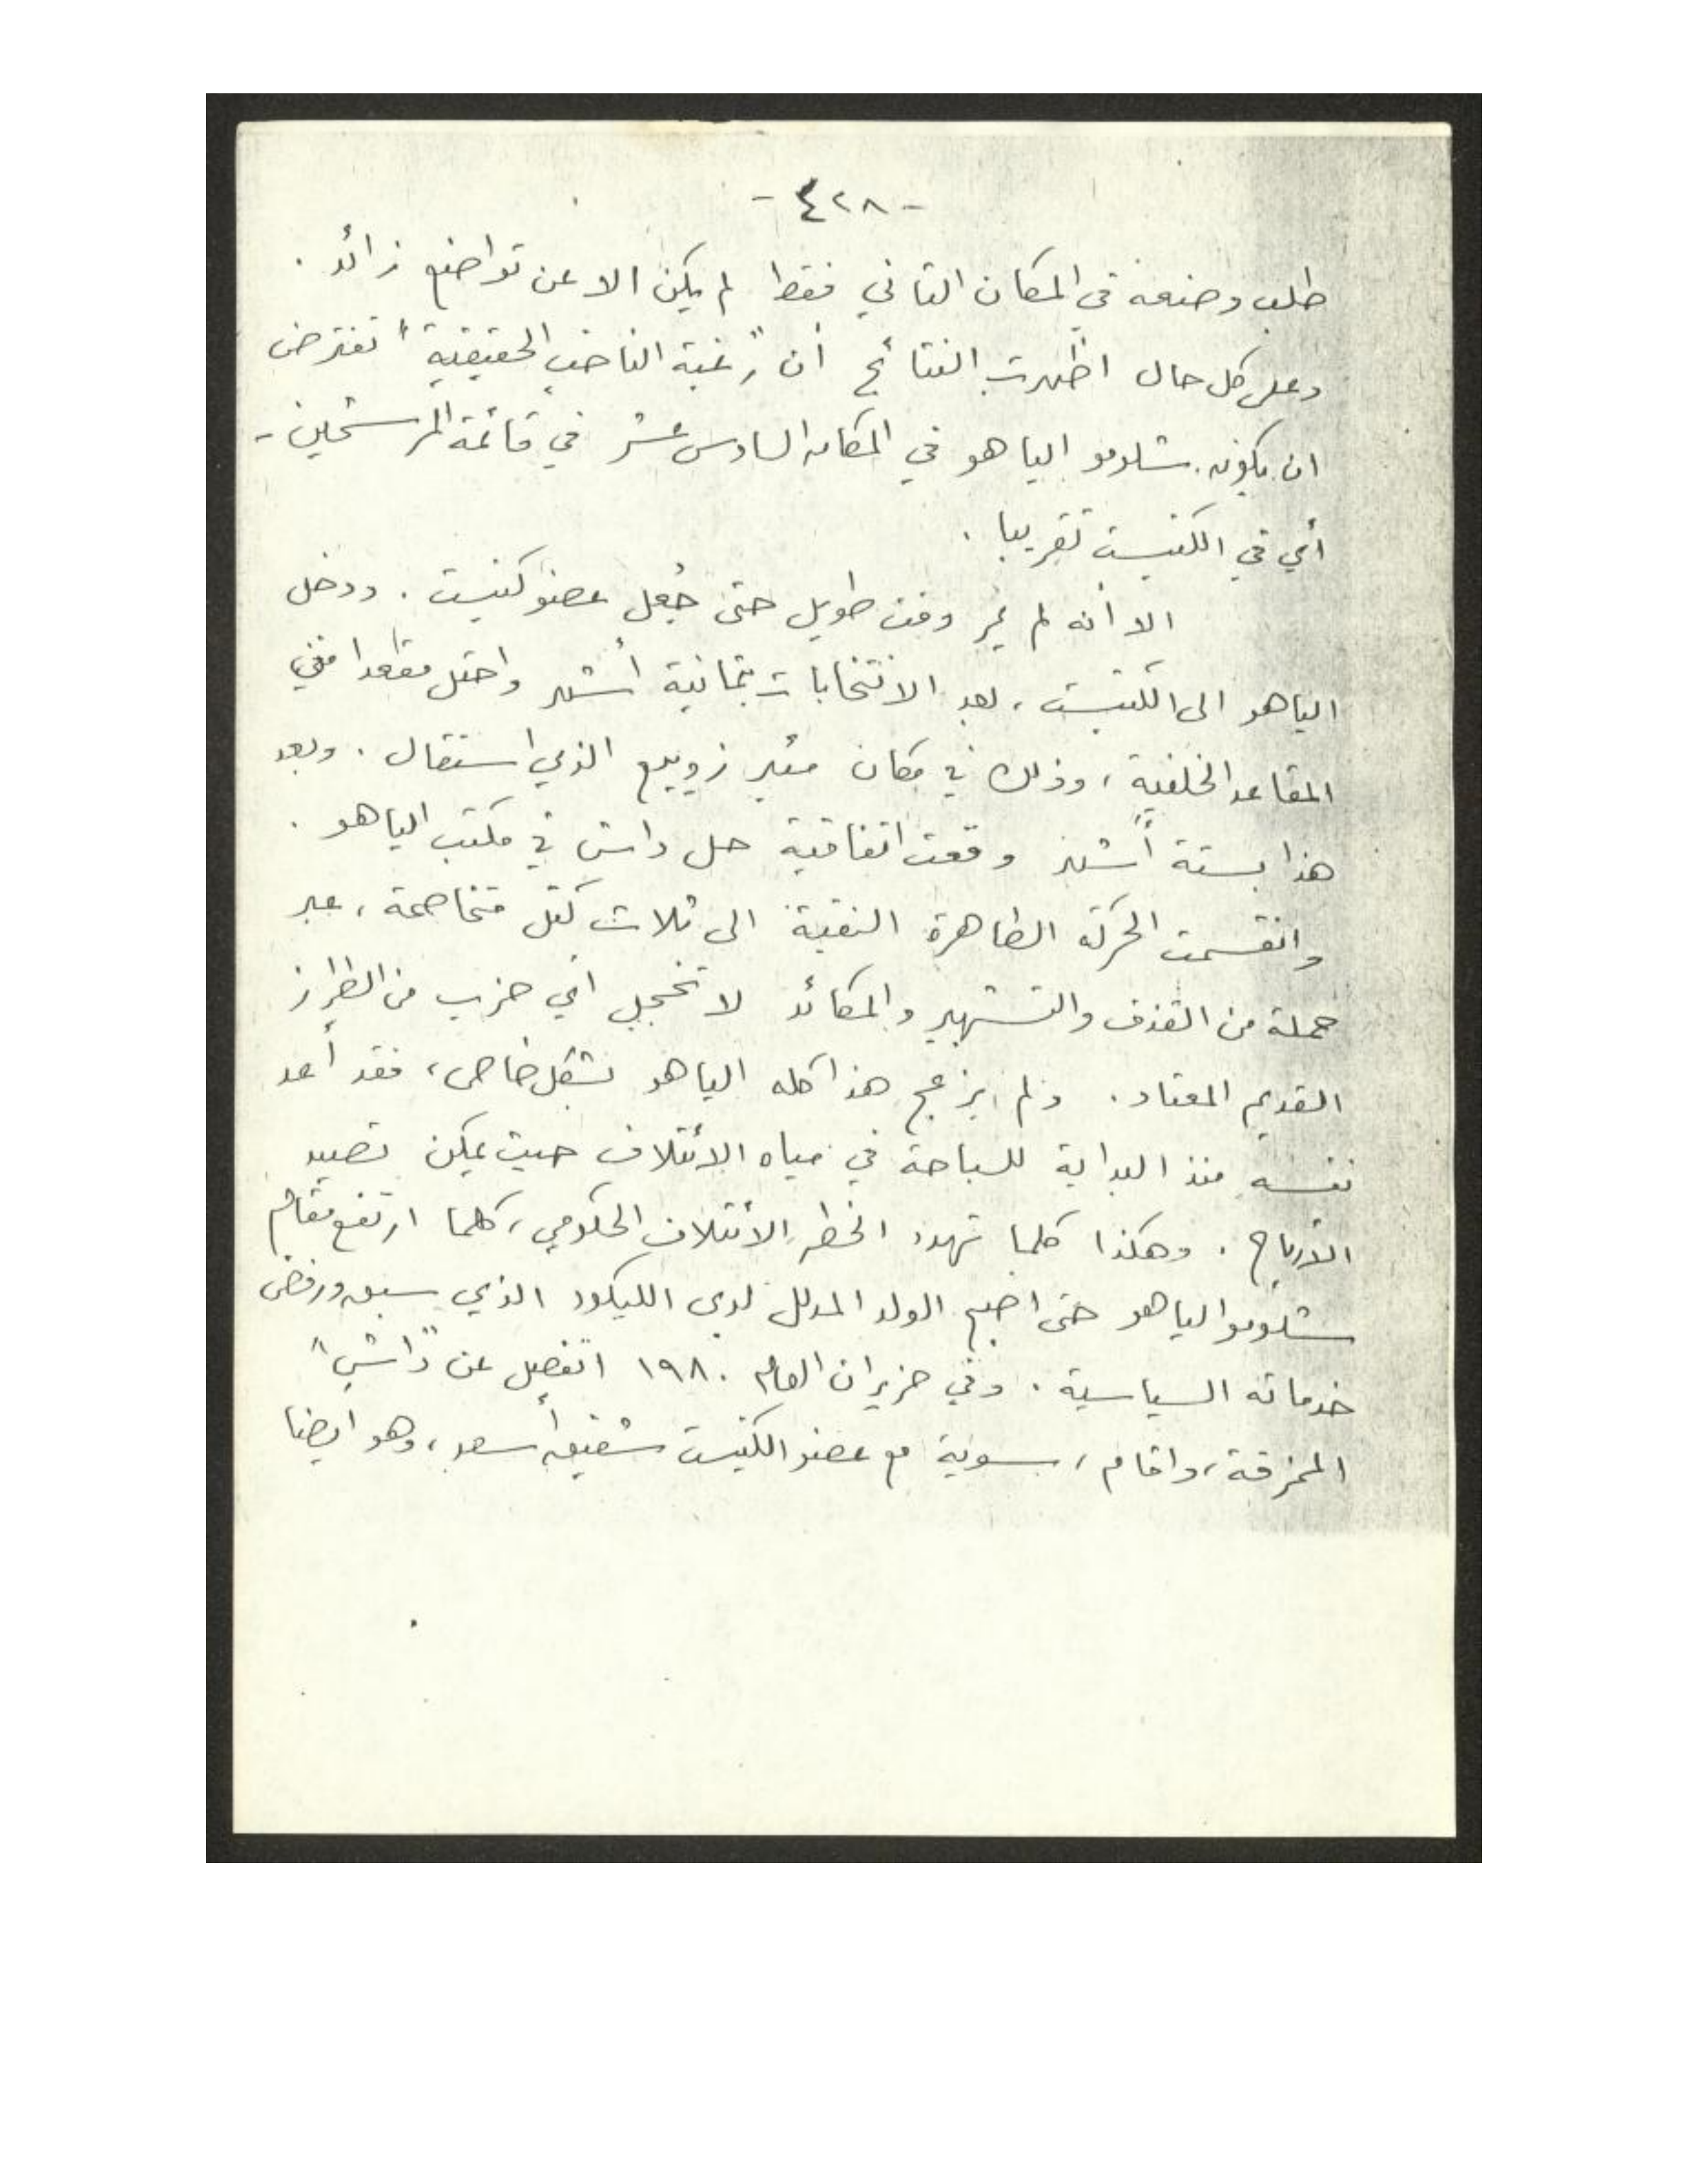 - ٤٢٨ -
طلب وضعه في المكان الثاني فقط لم يكن الا عن تواضع زائد .
وعلى كل حال اظهرت النتائج أن "رغبة الناخب الحقيقية" تفترض
ان يكون شلومو الياهو في المكان السادس عشر في قائمة المرشحين -
أي في الكنيست تقريبا .
الا أنه لم يمر وقت طويل حتى جُعل عضو كنيست . ودخل
الياهو الى الكنيست ، بعد الانتخابات بثمانية أشهر واحتل مقعدا في
المقاعد الخلفية ، وذلك في مكان مئير زوريع الذي استقال . وبعد
هذا بستة أشهر وقعت اتفاقية حل داش في مكتب الياهو .
وانقسمت الحركة الطاهرة النقية الى ثلاث كتل متخاصمة ، عبر
حملة من القذف والتشهير والمكائد لا تخجل اي حزب من الطراز
القديم المعتاد . ولم يزعج هذا كله الياهو بشكل خاص ، فقد أعد
نفسه منذ البداية للسباحة في مياه الائتلاف حيث يمكن تصيد
الأرباح . وهكذا كلما تهدد الخطر الائتلاف الحكومي ، كلما ارتفع مقام
شلومو الياهو حتى اصبح الولد المدلل لدى الليكود الذي سبق ورفض
خدماته السياسية . وفي حزيران العام ١٩٨٠ انفصل عن "داش"
الممزقة ، واقام ، سوية مع عضو الكنيست شفيق أسعد ، وهو ايضا